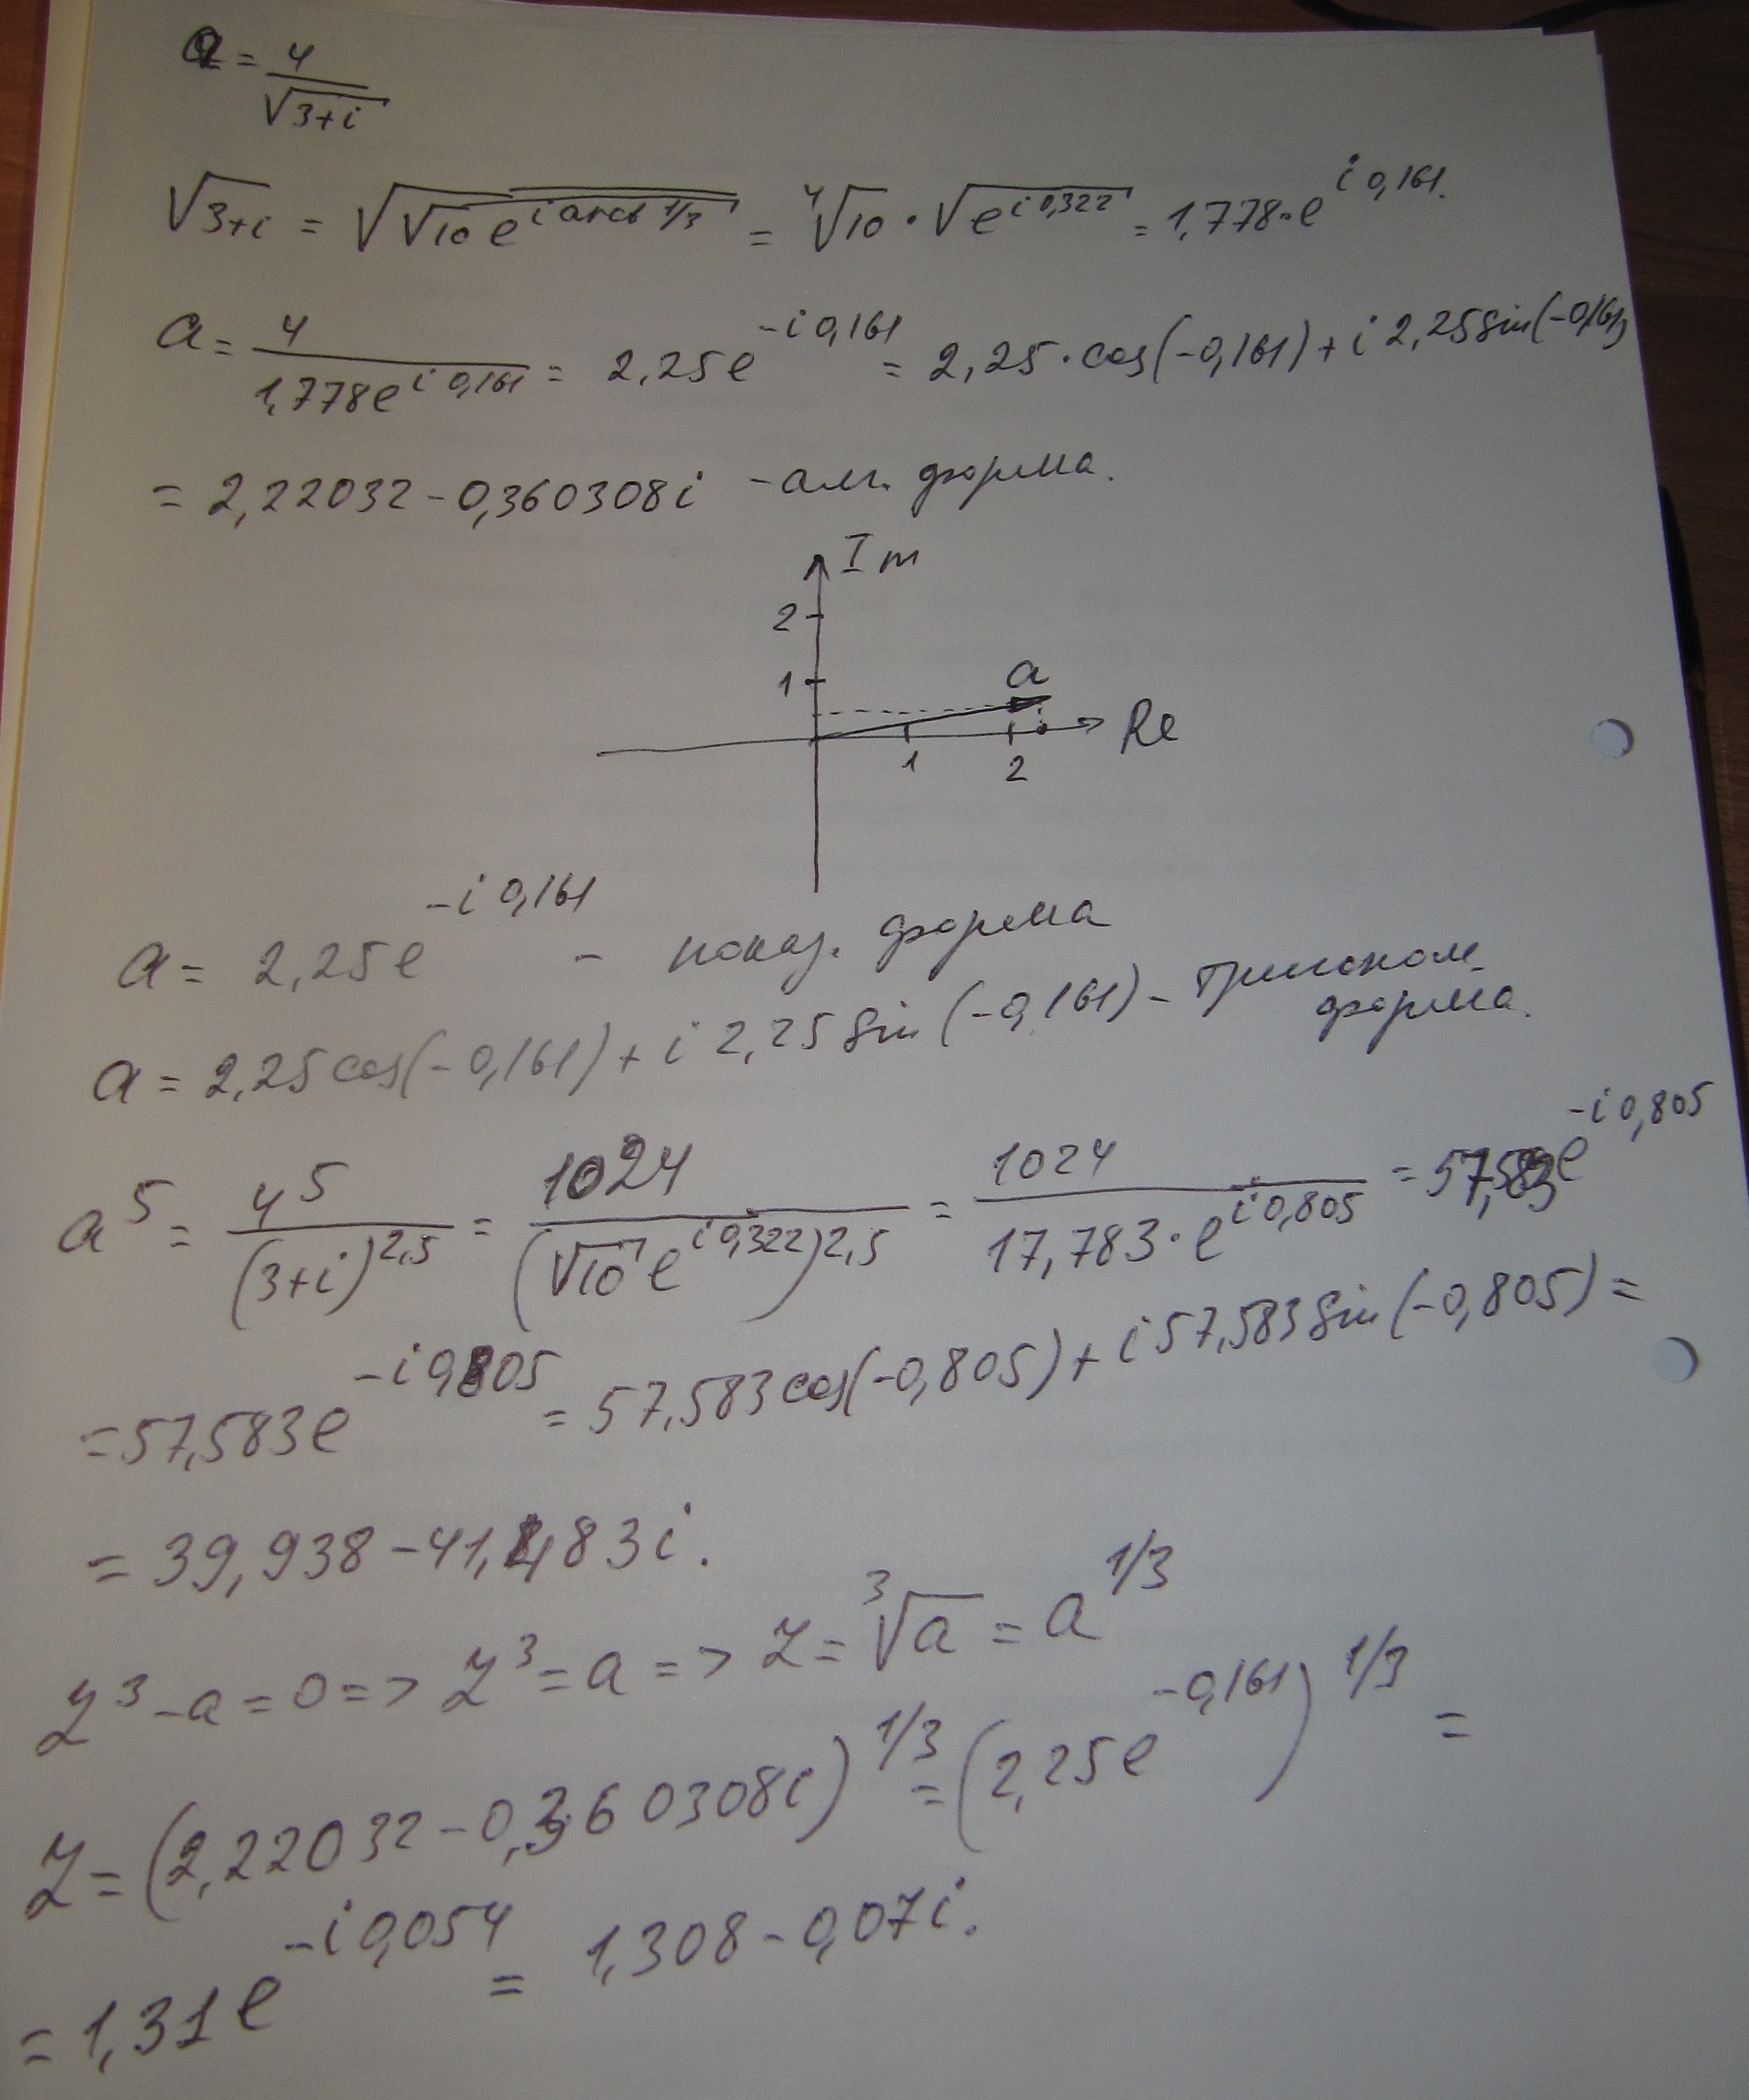 a = 4/√(3+i)
√(3+i) = √(√10 e^(i arctg 1/3)) = ⁴√10 · √(e^(i 0,322)) = 1,778·e^(i 0,161).
a = 4/(1,778e^(i 0,161)) = 2,25e^(-i 0,161) = 2,25·cos(-0,161)+i 2,25sin(-0,161)
= 2,22032 - 0,360308i - алг. форма.
Im
2
1
a
Re
1 2
a = 2,25e^(-i 0,161) - показ. форма
a = 2,25cos(-0,161)+i 2,25sin(-0,161) - тригоном.
форма.
a^5 = 4^5/(3+i)^2,5 = 1024/(√10 e^(i 0,322))^2,5 = 1024/(17,783·e^(i 0,805)) = 57,583e^(-i 0,805)
= 57,583e^(-i 0,805) = 57,583cos(-0,805)+i 57,583sin(-0,805) =
= 39,938 - 41,483i.
z^3 - a = 0 => z^3 = a => z = ³√a = a^(1/3)
z = (2,22032 - 0,360308i)^(1/3) = (2,25e^(-0,161))^(1/3) =
= 1,31e^(-i 0,054) = 1,308 - 0,07i.